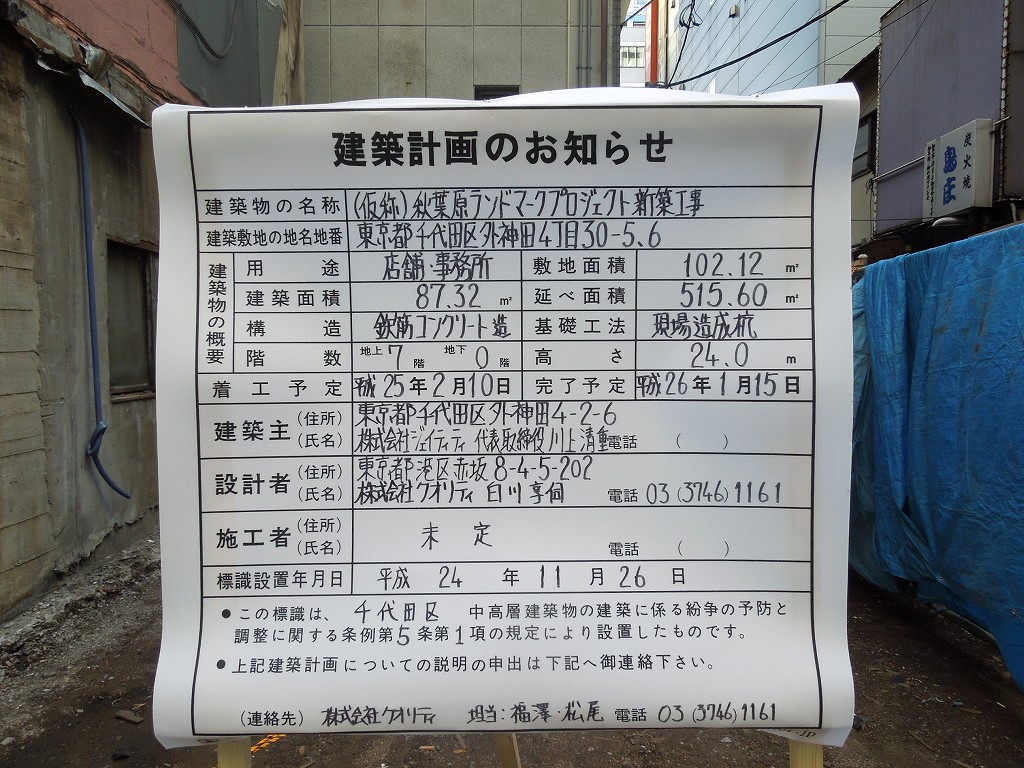 建築計画のお知らせ
建築物の名称 (仮称)秋葉原ランドマークプロジェクト新築工事
建築敷地の地名地番 東京都千代田区外神田4丁目30-5.6
建築物の概要
用途 店舗・事務所 敷地面積 102.12 m²
建築面積 87.32 m² 延べ面積 515.60 m²
構造 鉄筋コンクリート造 基礎工法 現場造成杭
階数 地上7階 地下0階 高さ 24.0 m
着工予定 平成25年2月10日 完了予定 平成26年1月15日
建築主 (住所) 東京都千代田区外神田4-2-6
(氏名) 株式会社ジェイティティ 代表取締役 川上清重 電話 ( )
設計者 (住所) 東京都港区赤坂8-4-5-202
(氏名) 株式会社クオリティ 白川 電話 03(3746)1161
施工者 (住所) 未定
(氏名) 電話 ( )
標識設置年月日 平成 24 年 11 月 26 日
●この標識は、千代田区 中高層建築物の建築に係る紛争の予防と
調整に関する条例第5条第1項の規定により設置したものです。
●上記建築計画についての説明の申出は下記へ御連絡下さい。
(連絡先) 株式会社クオリティ 担当:福澤・松尾 電話 03(3746)1161
炭火焼